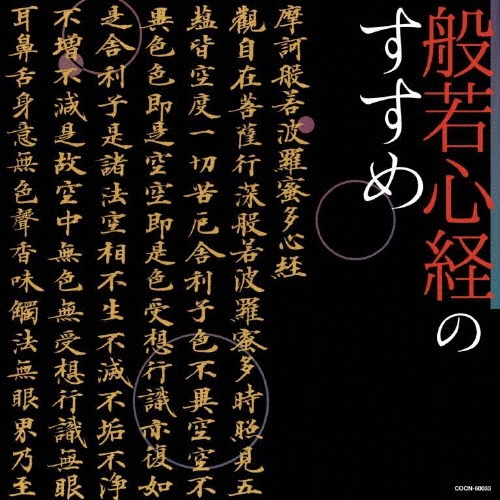 般若心経の
すすめ
摩訶般若波羅蜜多心経
觀自在菩薩行深般若波羅蜜多時照見五
蘊皆空度一切苦厄舎利子色不異空空不
異色色即是空空即是色受想行識亦復如
是舎利子是諸法空相不生不滅不垢不浄
不增不減是故空中無色無受想行識無眼
耳鼻舌身意無色聲香味觸法無眼界乃至
COCN-60033